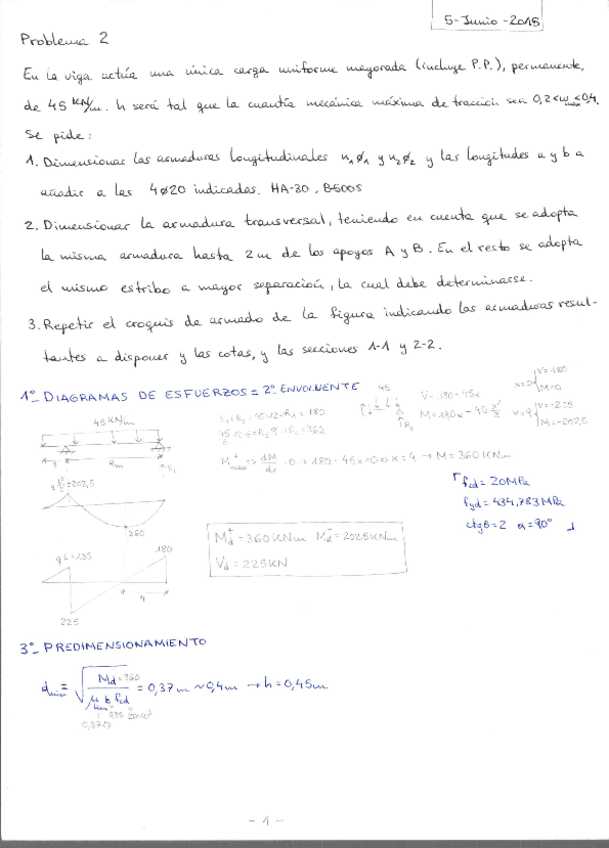 5-Junio-2015
Problema 2
En la viga actúa una única carga uniforme mayorada (incluye P.P.), permanente,
de 45 KN/m. h será tal que la cuantía mecánica máxima de tracción sea 0,2<ωmáx<0,4.
Se pide:
1. Dimensionar las armaduras longitudinales n₁ø₁ y n₂ø₂ y las longitudes a y b a
añadir a las 4ø20 indicadas. HA-30, B500S
2. Dimensionar la armadura transversal, teniendo en cuenta que se adopta
la misma armadura hasta 2m de los apoyos A y B. En el resto se adopta
el mismo estribo a mayor separación, la cual debe determinarse.
3. Repetir el croquis de armado de la figura indicando las armaduras resul-
tantes a disponer y las cotas, y las secciones 1-1 y 2-2.
1º_ DIAGRAMAS DE ESFUERZOS = 2º ENVOLVENTE
45 KN/m
45
V=180-45x
M=180x-45 x²/2
x=0 V=180 M=0
x=9 V=-225 M=-202,5
=0 → 180-45x=0 → x=4 → M=360KNm
=202,5
360
fcd=20MPa
fyd=434,783MPa
ctgθ=2 α=90°
Md⁺=360KNm Md⁻=202.5KNm
Vd=225KN
=135
180
4
225
3º_ PREDIMENSIONAMIENTO
dmin = √(Md=360 / μlim b fcd) = 0,37m ~ 0,4m → h=0,45m
- 1 -